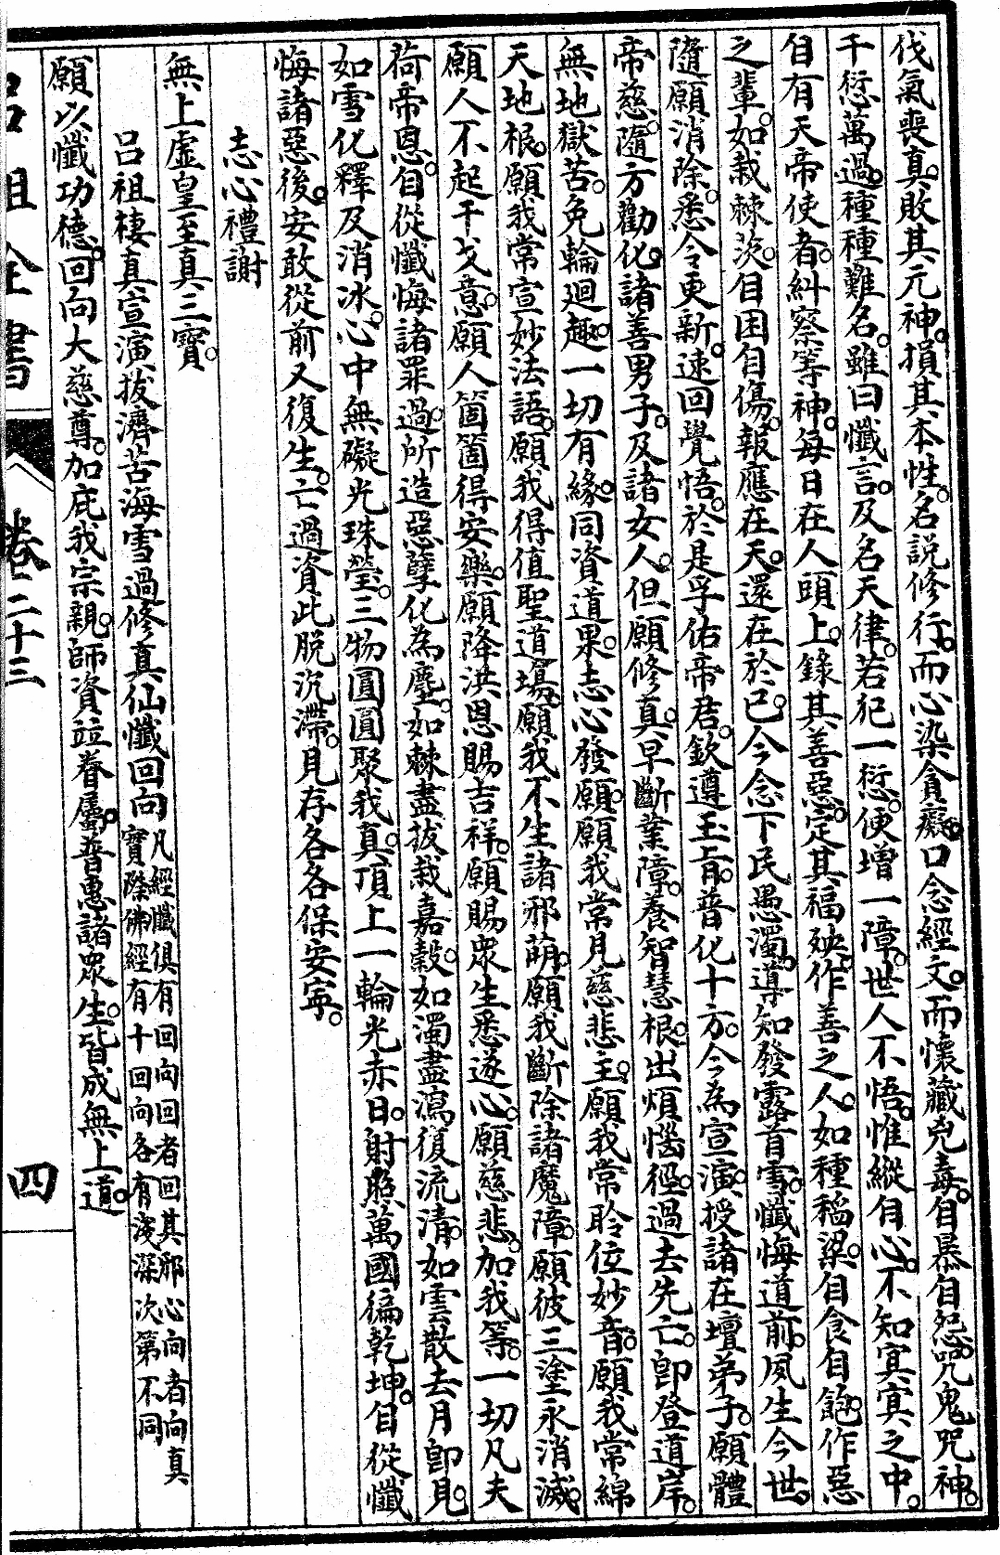 伐氣喪真。敗其元神。損其本性。名說修行。而心染貪癡。口念經文。而懷藏兇毒。自暴自怨。咒鬼咒神。
千愆萬過。種種難名。雖曰懺言。及名天律。若犯一愆。便增一障。世人不悟。惟縱自心。不知冥冥之中。
自有天帝使者。糾察等神。每日在人頭上。錄其善惡。定其福殃。作善之人。如種稻粱。自食自飽。作惡
之輩。如栽棘茨。自困自傷。報應在天。還在於己。今念下民愚濁。導知發露首宣。懺悔道前。夙生今世。
隨願消除。悉令更新。速回覺悟。於是孚佑帝君。欽遵玉旨。普化十方。今為宣演。授諸在壇弟子。願體
帝慈。隨方勸化。諸善男子。及諸女人。但願修真。早斷業障。養智慧根。出煩惱徑。過去先亡。即登道岸。
無地獄苦。免輪迴趣。一切有緣。同資道果。志心發願。願我常見慈悲主。願我常聆位妙音。願我常綿
天地根。願我常宣妙法語。願我得值聖道場。願我不生諸邪萌。願我斷除諸魔障。願彼三塗永消滅。
願人不起干戈意。願人箇箇得安樂。願降洪恩賜吉祥。願賜眾生悉遂心。願慈悲。加我等。一切凡夫
荷帝恩。自從懺悔諸罪過。所造惡孽化為塵。如棘盡拔栽嘉穀。如濁盡瀉復流清。如雲散去月即見。
如雪化釋及消冰。心中無礙光珠瑩。三物圓圓聚我真。頂上一輪光赤日。射照萬國徧乾坤。自從懺
悔諸惡後。安敢從前又復生。亡過資此脫沉滯。見存各各保安寧。
志心禮謝
無上虛皇至真三寶。
呂祖棲真宣演拔濟苦海雪過修真仙懺回向凡經懺俱有回向回者回其邪心向者向真
實除佛經有十回向各有淺深次第不同
願以懺功德。回向大慈尊。加庇我宗親。師資竝眷屬。普惠諸眾生。皆成無上道。
呂祖全書
卷二十三
四